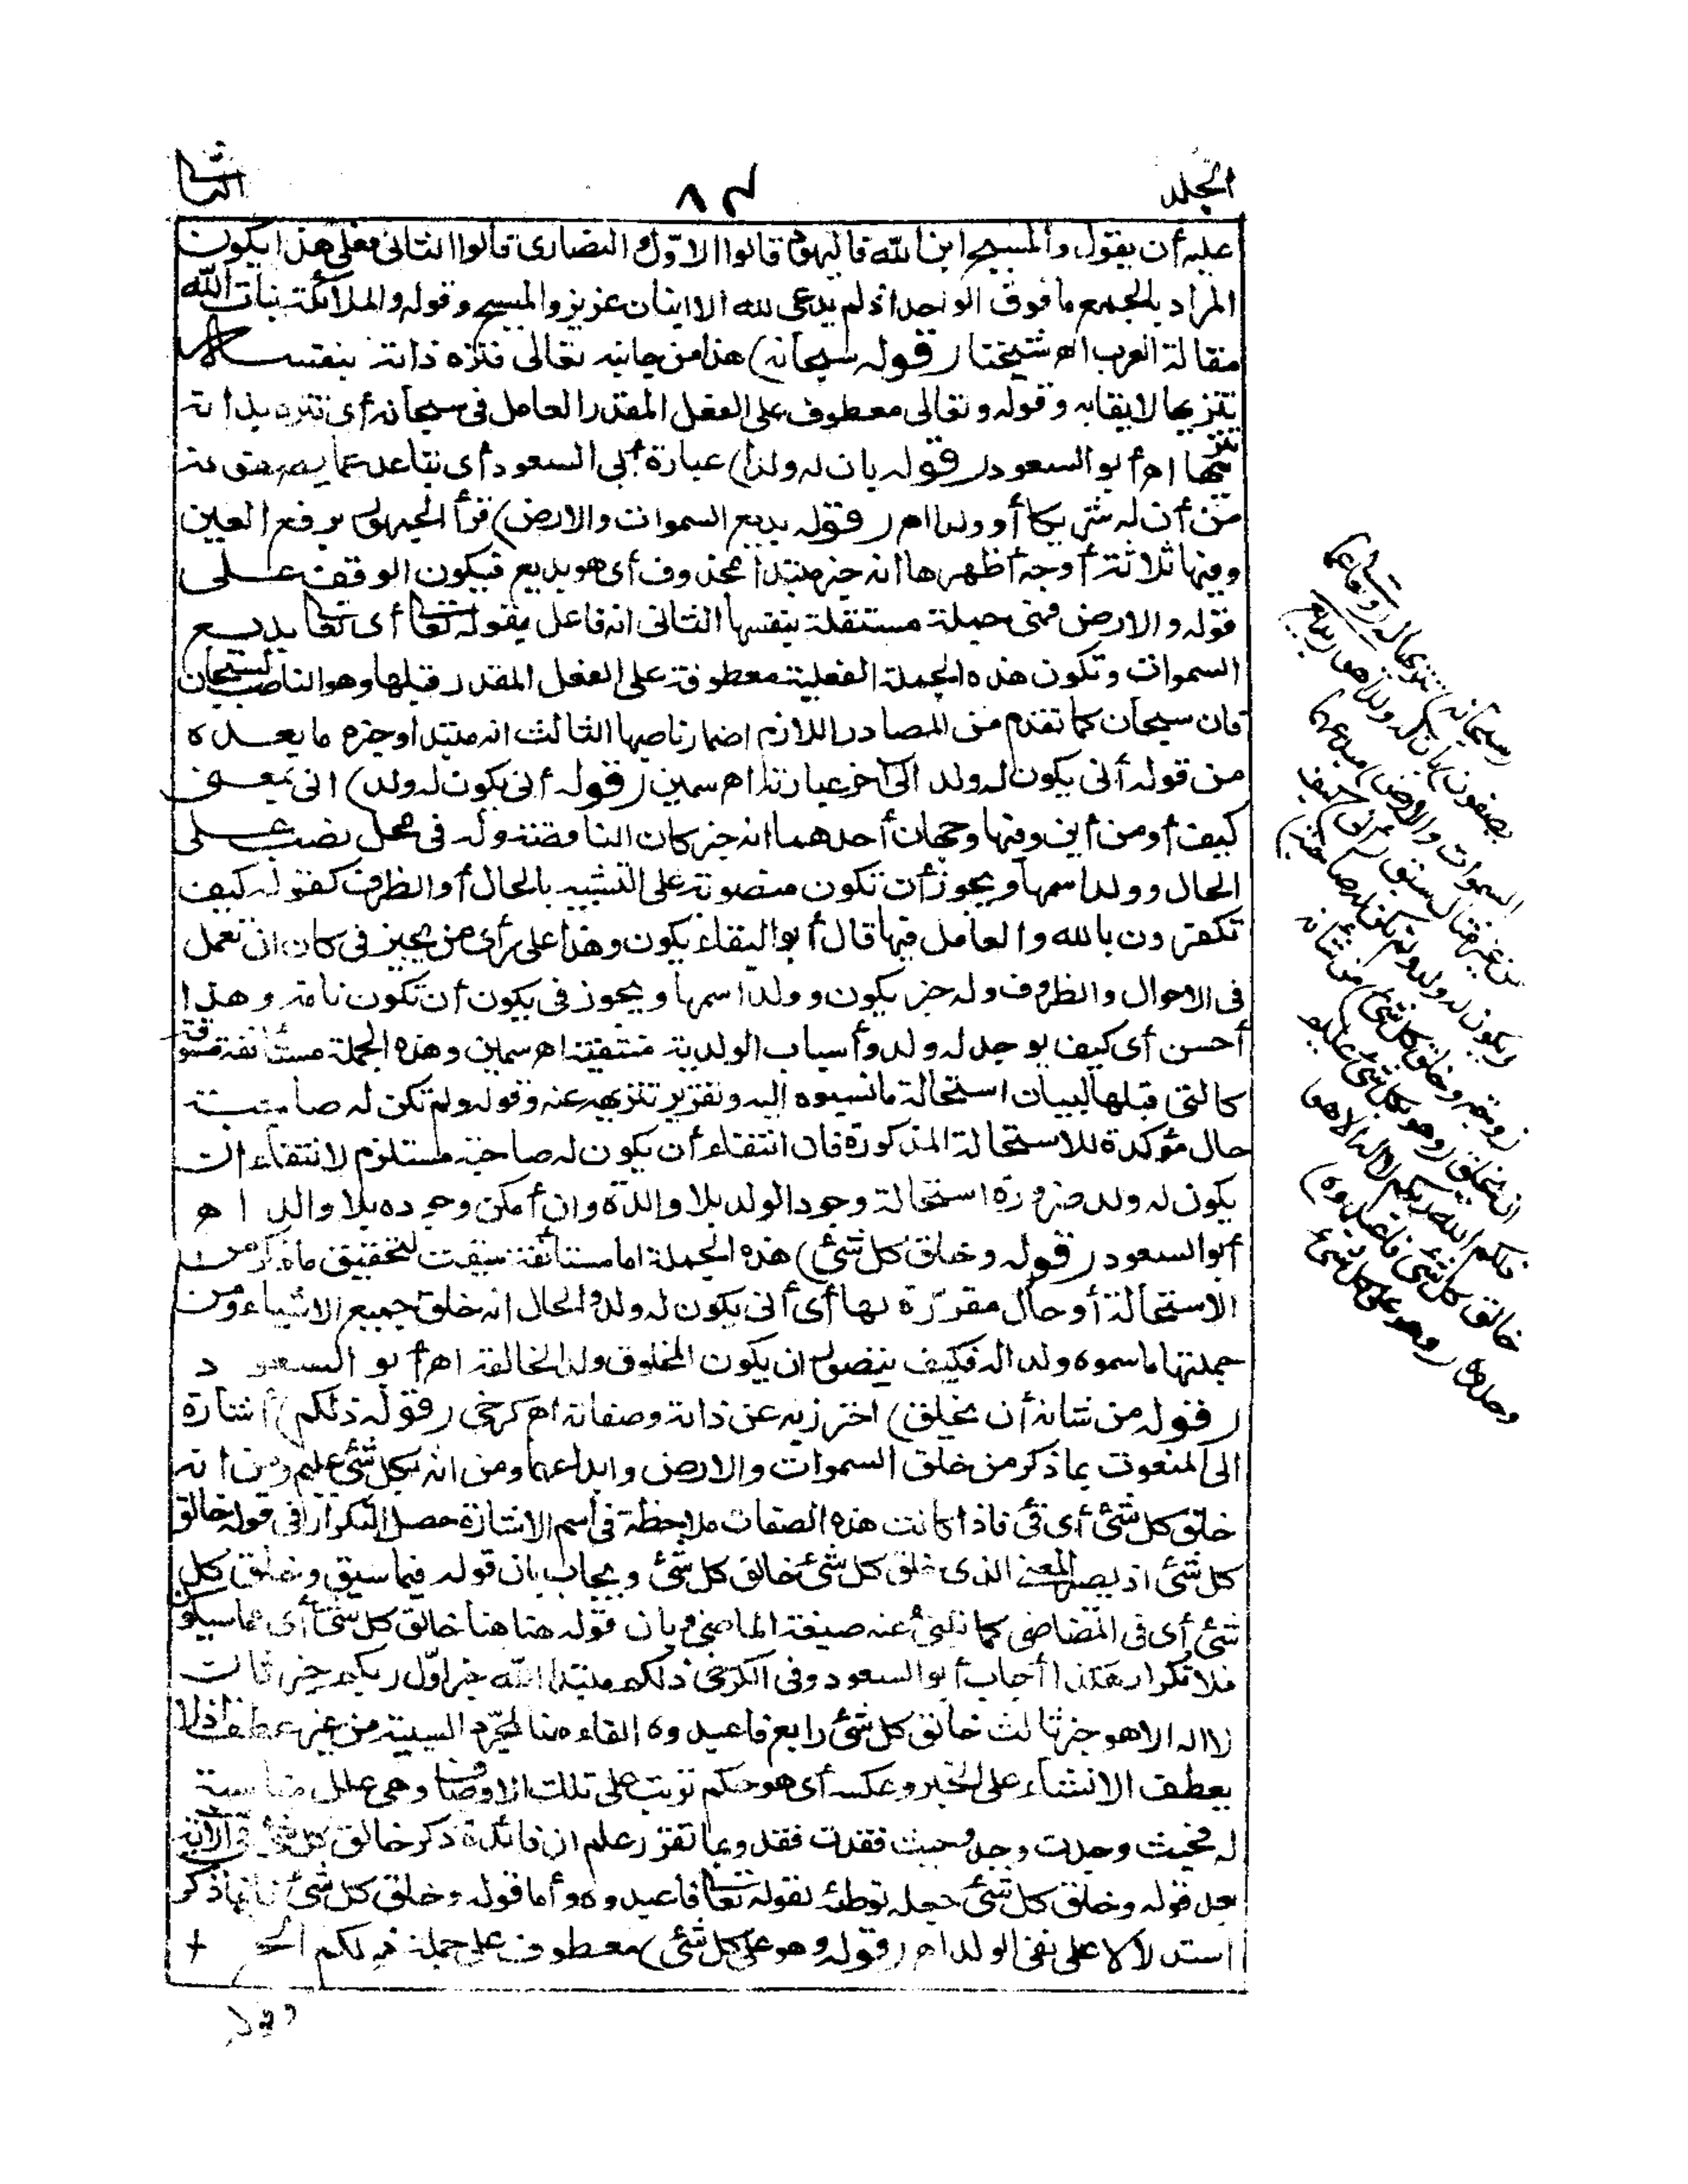 الجلد
٨٣
الثانى
عليه أن يقول والمسيح ابن الله فاليهود قالوا الاول والنصارى قالوا الثانى فعلى هذا يكون
المراد بالجمع ما فوق الواحد اذ لم يدعى لله الا ابنان عزيز والمسيح وقوله والملائكة بنات الله
مقالة العرب اه شيخنا (قوله سبحانه) هذا من جانبه تعالى فنزه ذاته بنفسه
تنزيها لايقابه وقوله وتعالى معطوف على الفعل المقدر العامل فى سبحانه أى تنزه بذاته
تنزيها اه أبو السعود (قوله بان له ولدا) عبارة أبى السعود أى تباعد عما يصفونه
من أن له شريكا أو ولدا اه (قوله بديع السموات والارض) قرأ الجمهور برفع العين
وفيها ثلاثة أوجه أظهرها انه خبر مبتدأ محذوف أى هو بديع فيكون الوقف على
قوله والارض فهى جملة مستقلة بنفسها الثانى انه فاعل بقوله تعالى أى تعالى بديع
السموات وتكون هذه الجملة الفعلية معطوفة على الفعل المقدر قبلها وهو الناصب لسبحان
فان سبحان كما تقدم من المصادر اللازم اضمار ناصبها الثالث انه مبتدا وخبره ما بعده
من قوله أنى يكون له ولد الى آخر عبارته اه سمين (قوله أنى يكون له ولد) انى بمعنى
كيف أو من أين وفيها وجهان أحدهما انه خبر كان الناقصة وله فى محل نصب على
الحال وولد اسمها ويجوز أن تكون منصوبة على التشبيه بالحال أو الظرف كقوله كيف
تكفرون بالله والعامل فيها قال أبو البقاء يكون وهذا على رأى من يجيز فى كان ان تعمل
فى الاحوال والظروف وله خبر يكون وولد اسمها ويجوز فى يكون أن تكون تامة وهذا
أحسن أى كيف يوجد له ولد وأسباب الولدية منتفية اه سمين وهذه الجملة مستأنفة مسوقة
كالتى قبلها لبيان استحالة ما نسبوه اليه وتقرير تنزيهه عنه وقوله ولم تكن له صاحبة
حال مؤكدة للاستحالة المذكورة فان انتفاء أن يكون له صاحبة مستلزم لانتفاء ان
يكون له ولد ضرورة استحالة وجود الولد بلا والدة وان أمكن وجوده بلا والد اه
أبو السعود (قوله وخلق كل شئ) هذه الجملة اما مستأنفة سيقت لتحقيق ما ذكر من
الاستحالة أو حال مقررة لها أى أنى يكون له ولد والحال انه خلق جميع الاشياء ومن
جملتها ما سموه ولدا له فكيف يتصور ان يكون المخلوق ولدا لخالقه اه أبو السعود
(قوله من شانه أن يخلق) احترز به عن ذاته وصفاته اه كرخى (قوله ذلكم) أشارة
الى المنعوت بما ذكر من خلق السموات والارض وابداعهما ومن انه بكل شئ عليم ومن انه
خلق كل شئ أى فى فاذا كانت هذه الصفات ملاحظة فى اسم الاشارة حصل التكرار فى قوله خالق
كل شئ اذ يصير المعنى الذى خلق كل شئ خالق كل شئ ويجاب بان قوله فيما سبق وخلق كل
شئ أى فى الماضى كما تنبئ عنه صيغة الماضى وبان قوله هنا خالق كل شئ أى مما سيكون
فلا تكرار هكذا أجاب أبو السعود وفى الكرخى ذلكم مبتدا الله خبر اول ربكم خبر ثان
لا اله الا هو خبر ثالث خالق كل شئ رابع فاعبدوه الفاء هنا لمجرد السببية من غير عطف اذ لا
يعطف الانشاء على الخبر وعكسه أى هو حكم ترتب على تلك الاوصاف وهى علل مناسبة
له فحيث وجدت وجد وحيث فقدت فقد وبما تقرر علم ان فائدة ذكر خالق كل شئ فى الآية
بعد قوله وخلق كل شئ جعله توطئة لقوله تعالى فاعبدوه وأما قوله وخلق كل شئ فانما ذكر
استدلالا على نفى الولد اه (قوله وهو على كل شئ) معطوف على جملة ذلكم الخ
(سبحانه) تنزيها له (وتعالى عما
يصفون) بان له ولدا هو (بديع
السموات والارض) مبدعهما
من غير مثال سبق (أنى) كيف
(يكون له ولد ولم تكن له صاحبة)
زوجة (وخلق كل شئ) من شأنه
ان يخلق (وهو بكل شئ عليم
ذلكم الله ربكم لا اله الا هو
خالق كل شئ فاعبدوه)
وحدوه (وهو على كل شئ